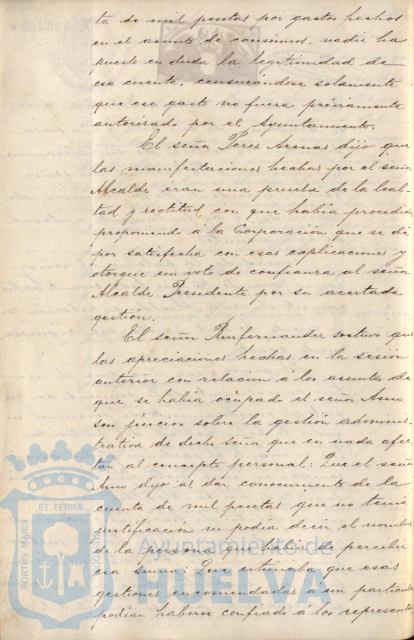 ta de mil pesetas por gastos hechos
en el asunto de consumos, nadie ha
puesto en duda la legitimidad de
esa cuenta, censurándose solamente
que ese gasto no fuera préviamente
autorizado por el Ayuntamiento.
El señor Perez Arenas dijo que
las manifestaciones hechas por el señor
Alcalde eran una prueba de la leal-
tad y rectitud con que habia procedido
proponiendo á la Corporación que se dé
por satisfecha con esas explicaciones y
otorgue un voto de confianza al señor
Alcalde Presidente por su acertada
gestión.
El señor sostuvo que
las apreciaciones hechas en la sesion
anterior con relacion á los asuntos de
que se habia ocupado el señor Amo
son júicios sobre la gestión adminis-
trativa de dicho señor que en nada afec-
tan al concepto personal: Que el señor
Amo dijo al dar conocimiento de la
cuenta de mil pesetas que no tenia
justificación ni podia decir el nombre
de la persona que habia de percibir
esa suma: Que estimaba que esas
gestiones encomendadas á un particular
podian haberse confiado á los represent
PORTUS MARIS
ET TERRÆ
Ayuntamiento de
HUELVA